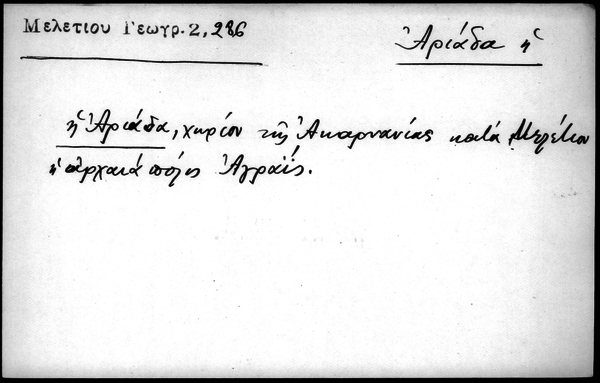 Μελετίου Γεωγρ. 2, 286
Ἀριάδα ἡ
ἡ Ἀριάδα, χωρίον τῆς Ἀκαρνανίας κατά Μελέτιον
ἡ ἀρχαιά πόλις Ἀγραΐς.